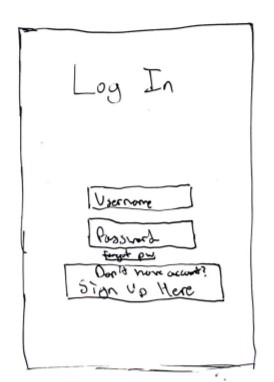 Log In
Username
Password
forgot pw
Don't have account?
Sign Up Here